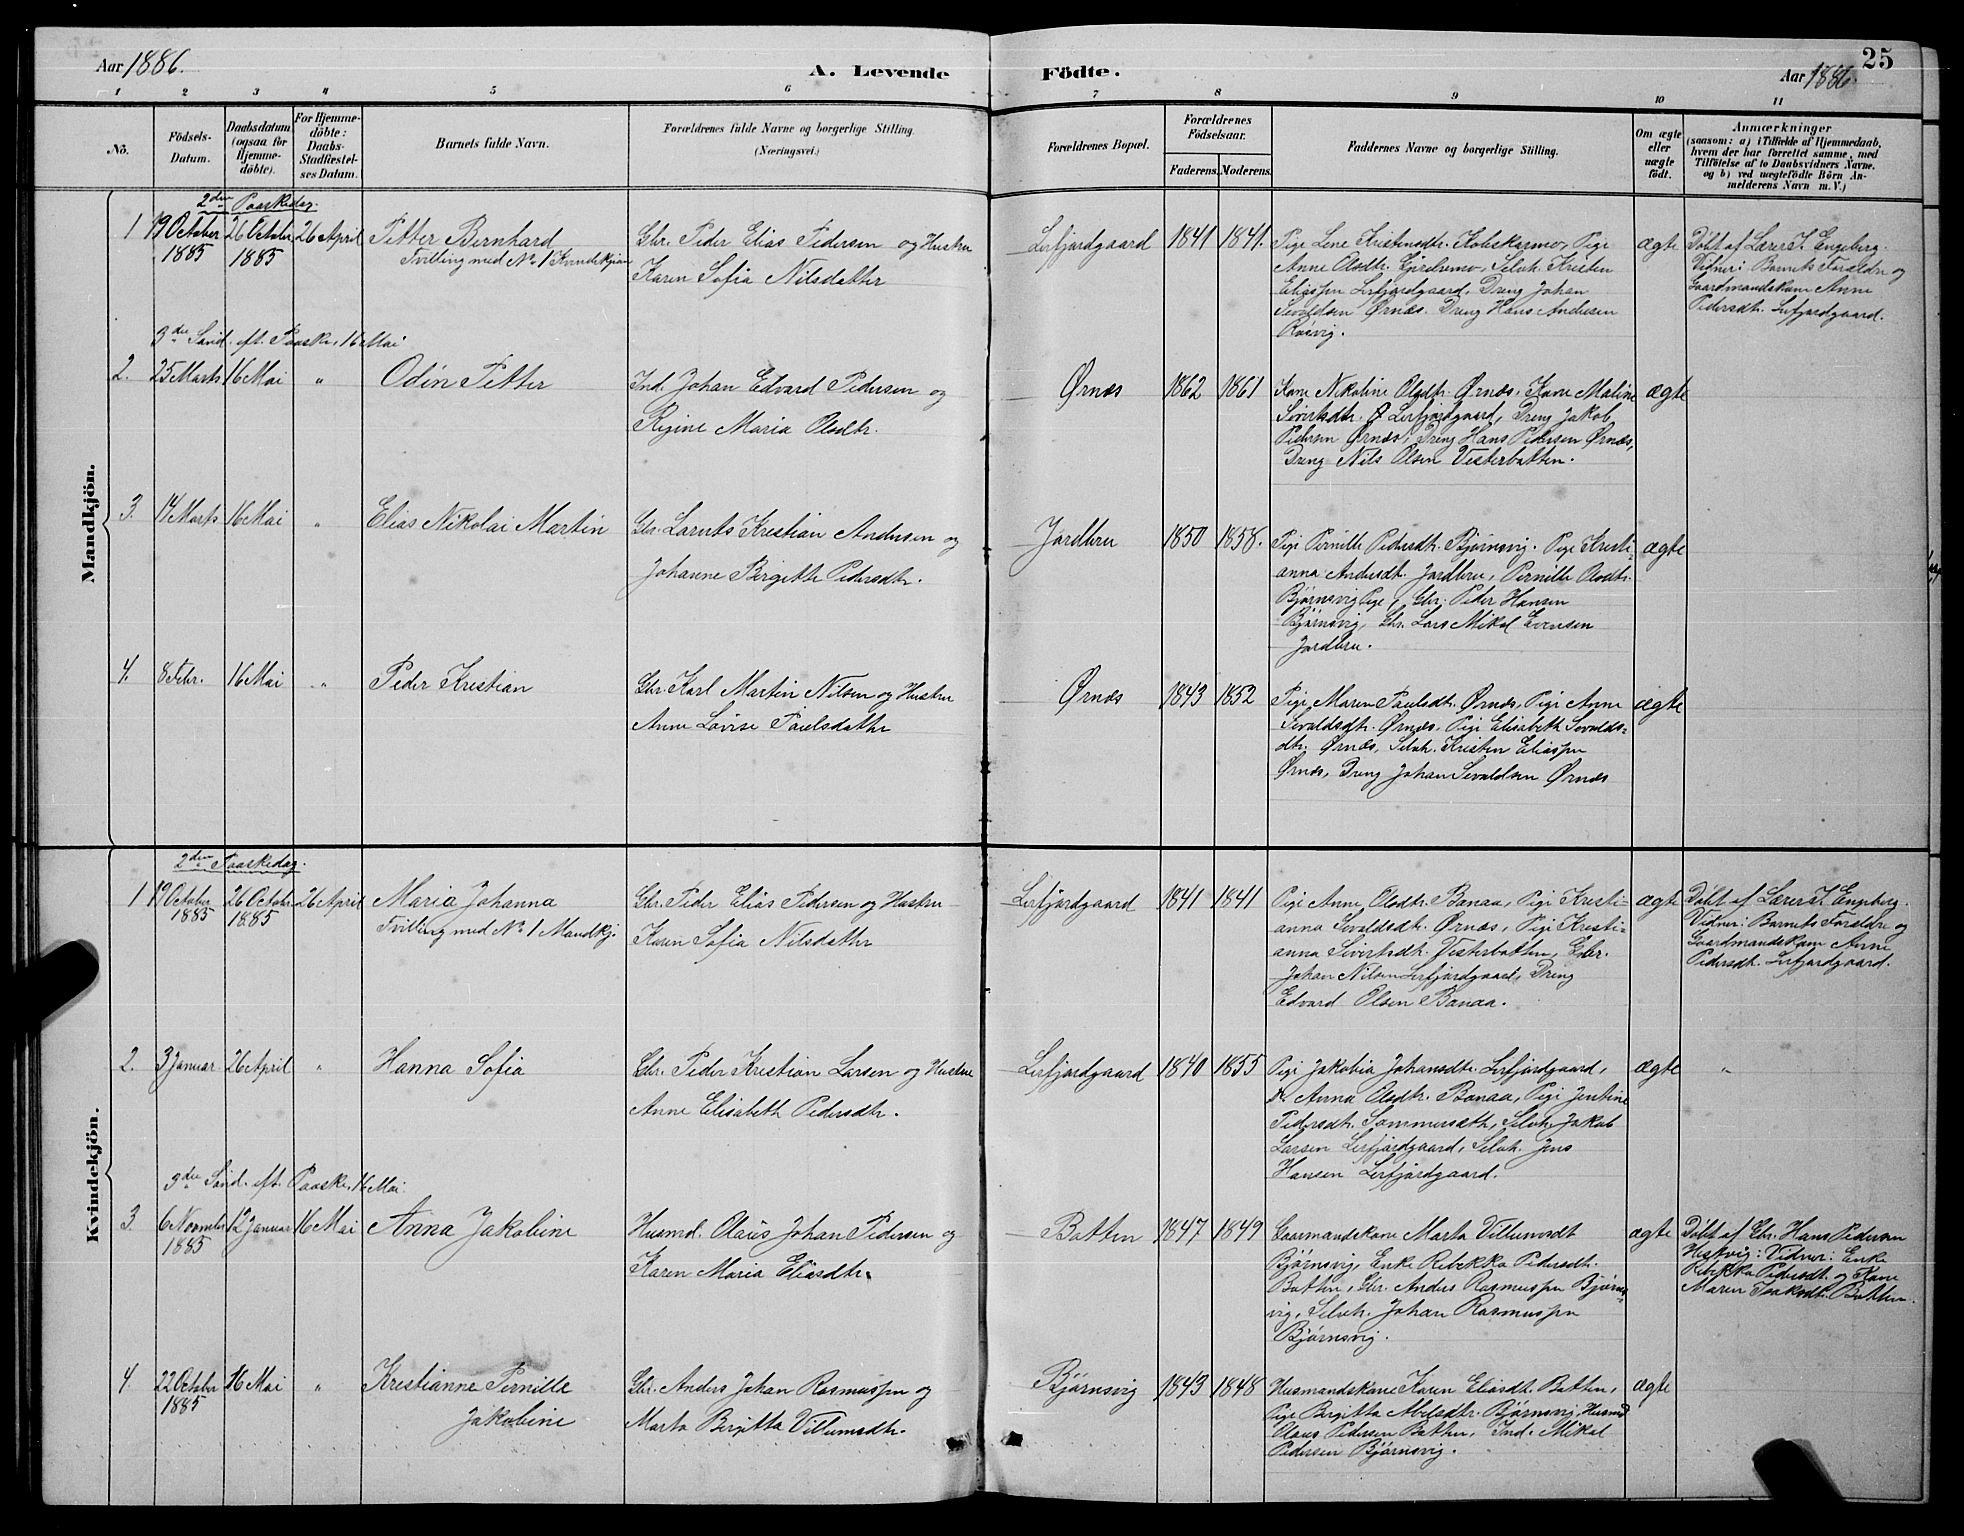 Aar 1886.
A. Levende Födte.
Aar 1886.
25
1 2 3 4 5 6 7 8 9 10 11
No.
Födsels-Datum.
Daabsdatum (ogsaa for Hjemme-döbte).
For Hjemme-döbte: Daabs-Stadfæstel-ses Datum.
Barnets fulde Navn.
Forældrenes fulde Navne og borgerlige Stilling.
(Næringsvei.)
Forældrenes Bopæl.
Forældrenes Födselsaar.
Faderens. Moderens.
Faddernes Navne og borgerlige Stilling.
Om ægte eller uægte födt.
Anmærkninger
(saasom: a) i Tilfælde af Hjemmedaab, hvem der har forrettet samme, med Tilföielse af to Daabsvidners Navne, og b) ved uægtefödte Börn Anmelderens Navn m. V.)
Mandkjön.
2den Paaskedag.
1 19 October 1885 26 Octobr 1885 26 April Petter Bernhard
Tvilling med No 1 Kvindekjøn
Gbr. Peder Elias Pedersen og Hustru
Karen Sofia Nilsdatter
Leifjordgaard 1841 1841.
Pige Lene Kristensdtr. Koleskarmo, Pige
Anne Olsdtr. Selvh. Kristen
Eliassen Leifjordgaard, Dreng Johan
Sivaldsen Ørnæs. Dreng Hans Andersen
Røsvig.
ægte
Døbt af Lærer I. Engeberg.
Vidner: Barnets Forældre og
Gaardmandskone Anne
Pedersdtr. Leifjordgaard.
3die Sønd. eft. Paaske, 16 Mai
2. 25 Marts 16 Mai " Odin Petter
Ind. Johan Edvard Pedersen og
Regine Maria Olsdtr.
Ørnæs 1862 1861
Kone Nikoline Olsdtr. Ørnæs, Kone Maline
Sivertsdtr. Leifjordgaard, Dreng Jakob
Pedersen Ørnæs, Dreng Hans Pedersen Ørnæs,
Dreng Nils Olsen Vesterbotten.
ægte
3. 14 Marts 16 Mai " Elias Nikolai Martin
Gbr. Larents Kristian Andersen og
Johanne Birgitte Pedersdtr.
Jordbru 1850 1858.
Pige Pernille Pedersdtr. Bjørnsvig. Pige Kristi-
anna Andersdt. Jordbru, Pernille Olsdtr.
Bjørnsvig Pige, Gbr. Peder Hansen
Bjørnsvig, Gbr. Lars Mikal Evensen
Jordbru.
ægte
4. 8 Febr. 16 Mai " Peder Kristian
Gbr. Karl Martin Nilsen og Hustru
Anne Lovise Paulsdatter
Ørnæs 1843 1852
Pige Maren Paulsdt. Ørnæs, Pige Anne
Sivaldsdtr. Ørnæs, Pige Elisabeth Sivalds-
dtr. Ørnæs, Selvh. Kristen Eliassen
Ørnæs, Dreng Johan Sivaldsen Ørnæs
ægte
Kvindekjön.
2den Paaskedag.
1 19 October 1885 26 Octobr 1885 26 April Maria Johanna
Tvilling med No 1 Mandkj.
Gbr. Peder Elias Pedersen og Hustru
Karen Sofia Nilsdatter
Leifjordgaard 1841 1841
Pige Anne Olsdtr. Bonaa, Pige Kristi-
anna Sivaldsdtr. Ørnæs, Pige Kristi-
anna Sivertsdtr. Vesterbotten, Gbr.
Johan Nilsen Leifjordgaard, Dreng
Edvard Olsen Bonaa.
ægte
Døbt af Lærer I. Engeberg.
Vidner: Barnets Forældre og
Gaardmandskone Anne
Pedersdtr. Leifjordgaard.
2. 3 Januar 26 April " Hanna Sofia
Gbr. Peder Kristian Larsen og Hustru
Anne Elisabeth Pedersdtr.
Leifjordgaard 1840 1855
Pige Jakobia Johansdtr. Leifjordgaard,
Anna Olsdtr. Bonaa, Pige Jentine
Pedersdtr. Sommersæth, Selvh. Jakob
Larsen Leifjordgaard, Selvh. Jens
Hansen Leifjordgaard.
ægte "
3die Sønd. eft. Paaske, 16 Mai.
3. 6 November 1885 12 Januar 16 Mai Anna Jakobine
Husmd. Olaus Johan Pedersen og
Karen Maria Eliasdtr.
Botten 1847 1849
Gaarmandskone Marta Villumsdt
Bjørnsvig, Enke Rebekka Pedersdtr.
Botten, Gbr. Anders Rasmussen Bjørns-
vig, Selvh. Johan Rasmussen
Bjørnsvig.
ægte
Døbt af Gbr. Hans Pedersen
Vidner: Enke
Rebekka Pedersdt. og Kone
Maren Isaksdt. Botten.
4. 22 October 1885 16 Mai " Kristianne Pernille
Jakobine
Gbr. Anders Johan Rasmussen og
Marta Birgitta Villumsdtr.
Bjørnsvig 1843 1848
Husmandskone Karen Eliasdt. Botten,
Pige Birgitta Abelsdtr. Bjørnsvig, Husmd
Olaus Pedersen Botten, Ind. Mikal
Pedersen Bjørnsvig.
ægte